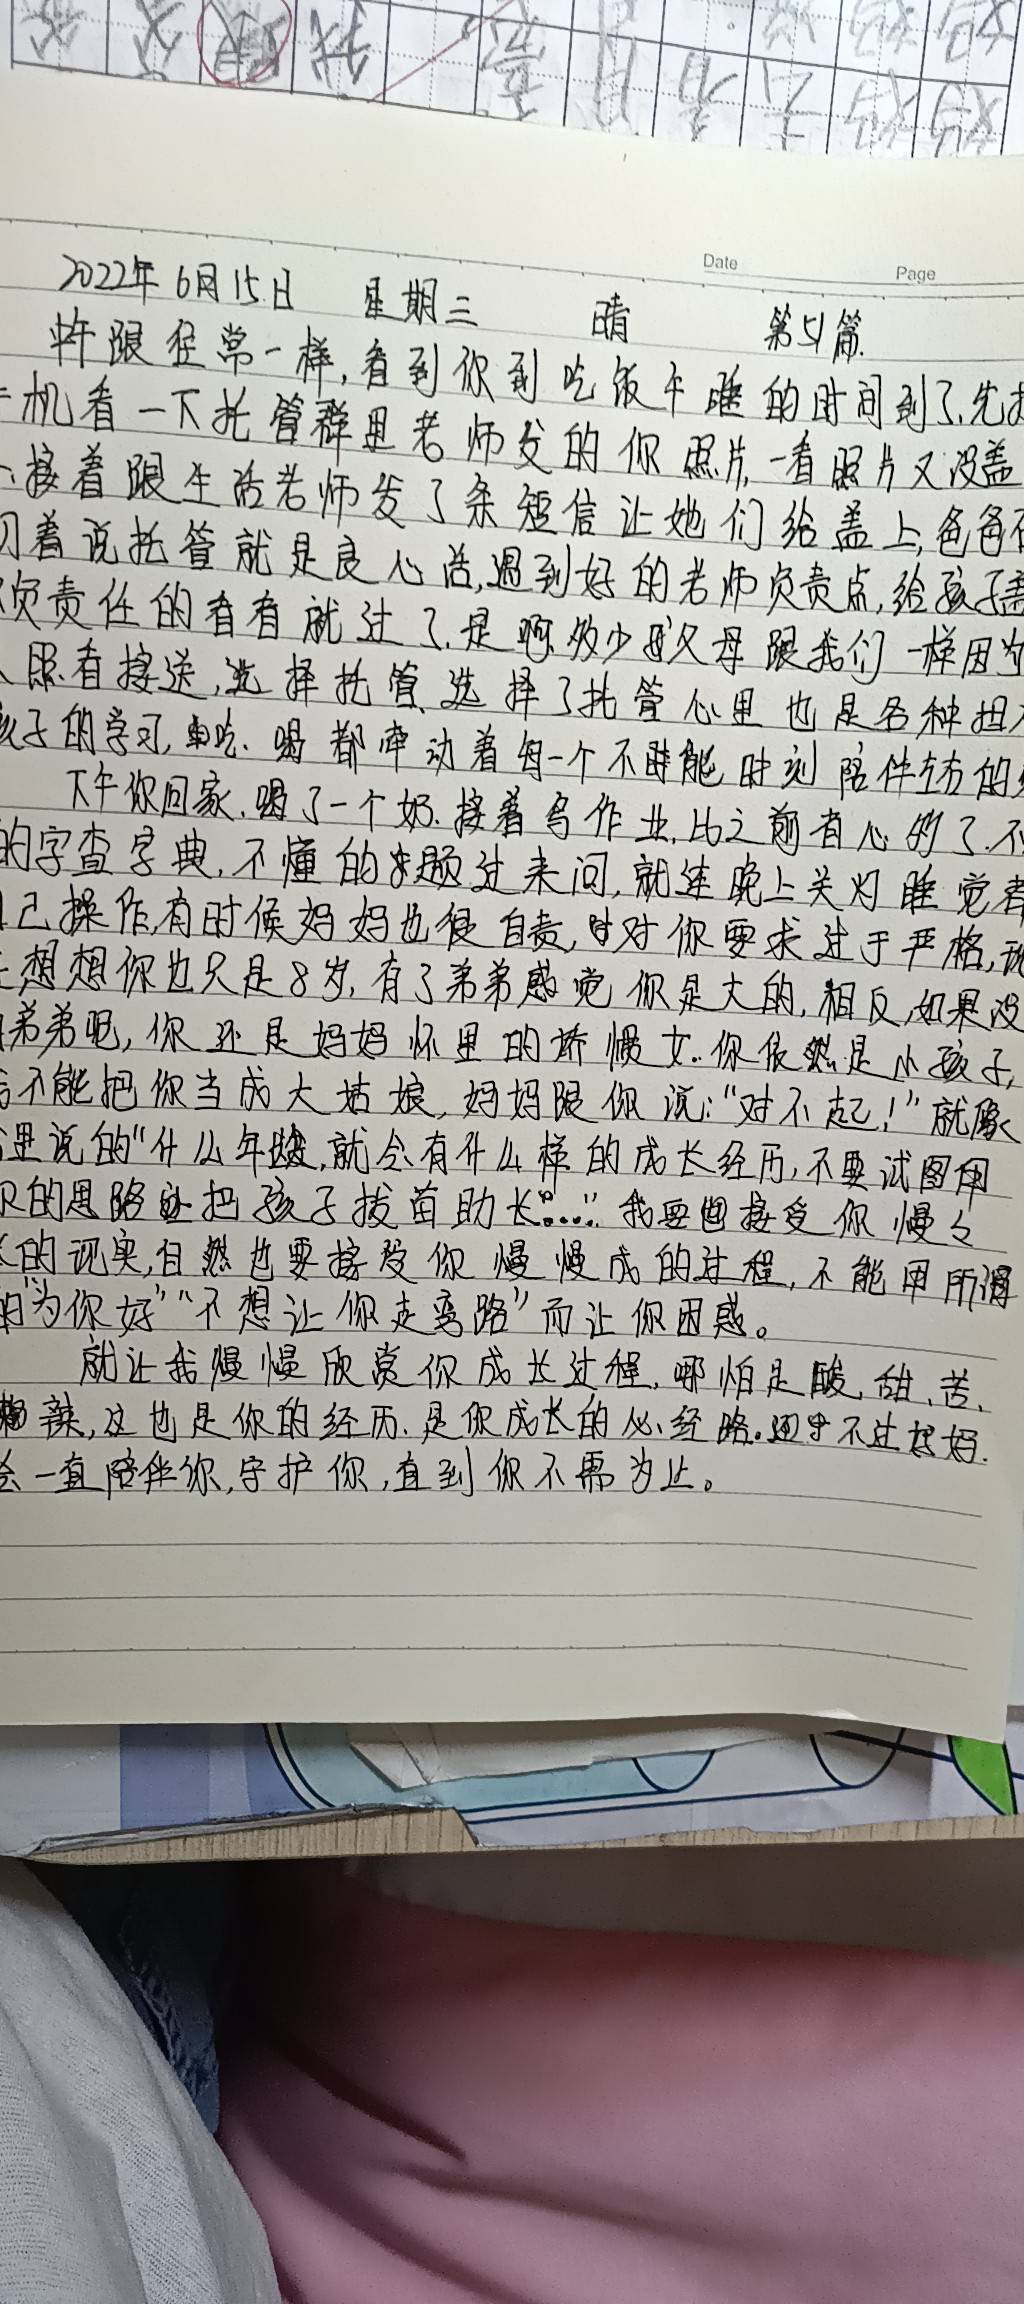 Date
Page
2022年6月15日 星期三 晴 第51篇
中午跟往常一样,看到你到吃饭午睡的时间到了.先
机看一下托管群里老师发的你照片,一看照片又没盖
接着跟生活老师发了条短信让她们给盖上,爸爸
着说托管就是良心活,遇到好的老师负责点,给孩子盖
负责任的看看就过了.是啊,多少父母跟我们一样因为
照看接送,选择托管、选择了托管心里也是各种担
孩子的学习,吃、喝都牵动着每一个不能时刻陪伴左右的
下午你回家.喝了一个奶.接着写作业.比之前有心的了.不
的字查字典,不懂的题过来问,就连晚上关灯睡觉都
己操作,有时候妈妈也很自责,对你要求过于严格,
想想你也只是8岁,有了弟弟感觉你是大的,相反,如果没
弟弟呢,你还是妈妈怀里的娇惯女..你依然是小孩子,
不能把你当成大姑娘,妈妈跟你说:“对不起!”就像
里说的“什么年龄,就会有什么样的成长经历,不要试图用
的思路把孩子拔苗助长”...我要接受你慢々
的现实,自然也要接受你慢慢成的过程,不能用所谓
的“为你好”“不想让你走弯路”而让你困惑。
就让我慢慢欣赏你成长过程.哪怕是酸、甜、苦、
辣,这也是你的经历.是你成长的必经路.不过妈妈.
会一直陪伴你,守护你,直到你不需为止。